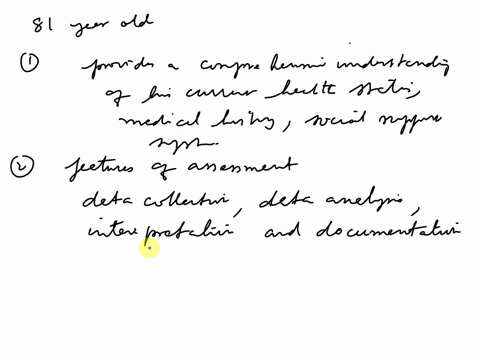 81 year old
① provides a comprehensive understanding
of his current health status,
medical history, social support
system.
② features of assessment
data collection, data analysis,
interpretation and documentation